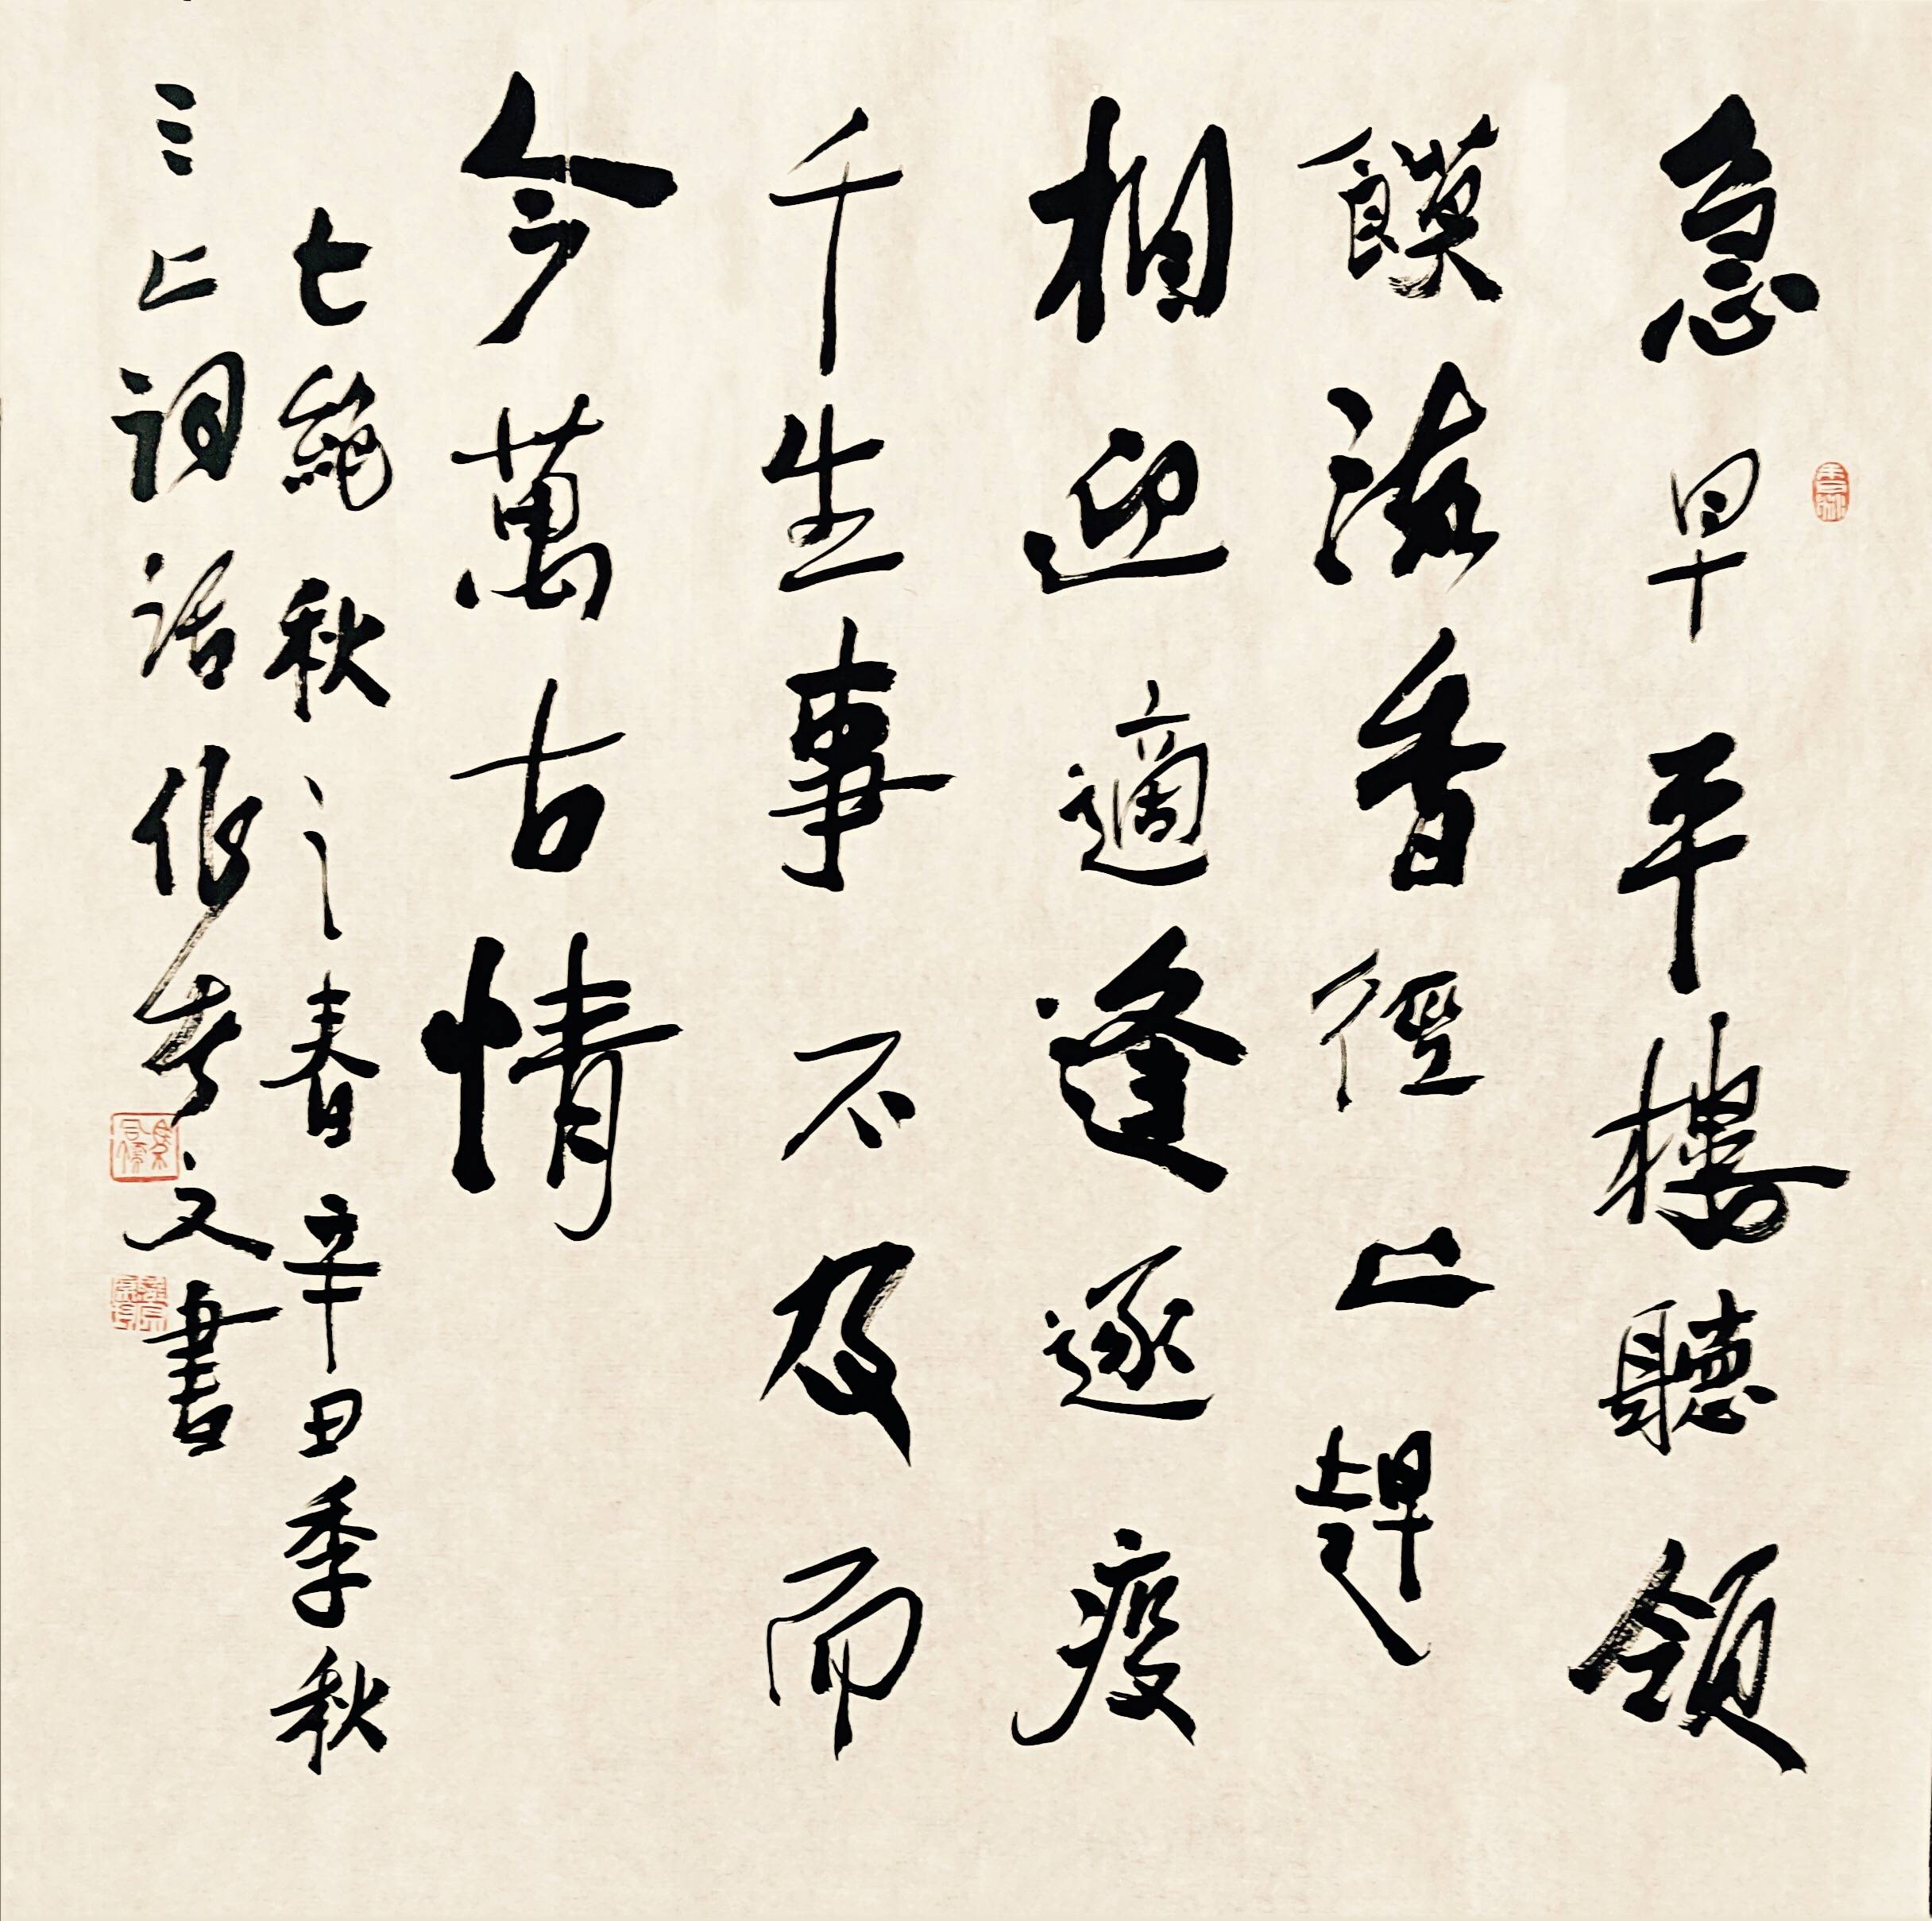 急早平樓聽領
饃海香徑上趕
相迎適逢逐疫
千生事不及而
今萬古情
七絕秋之春辛丑季秋
三上詞話作者文書